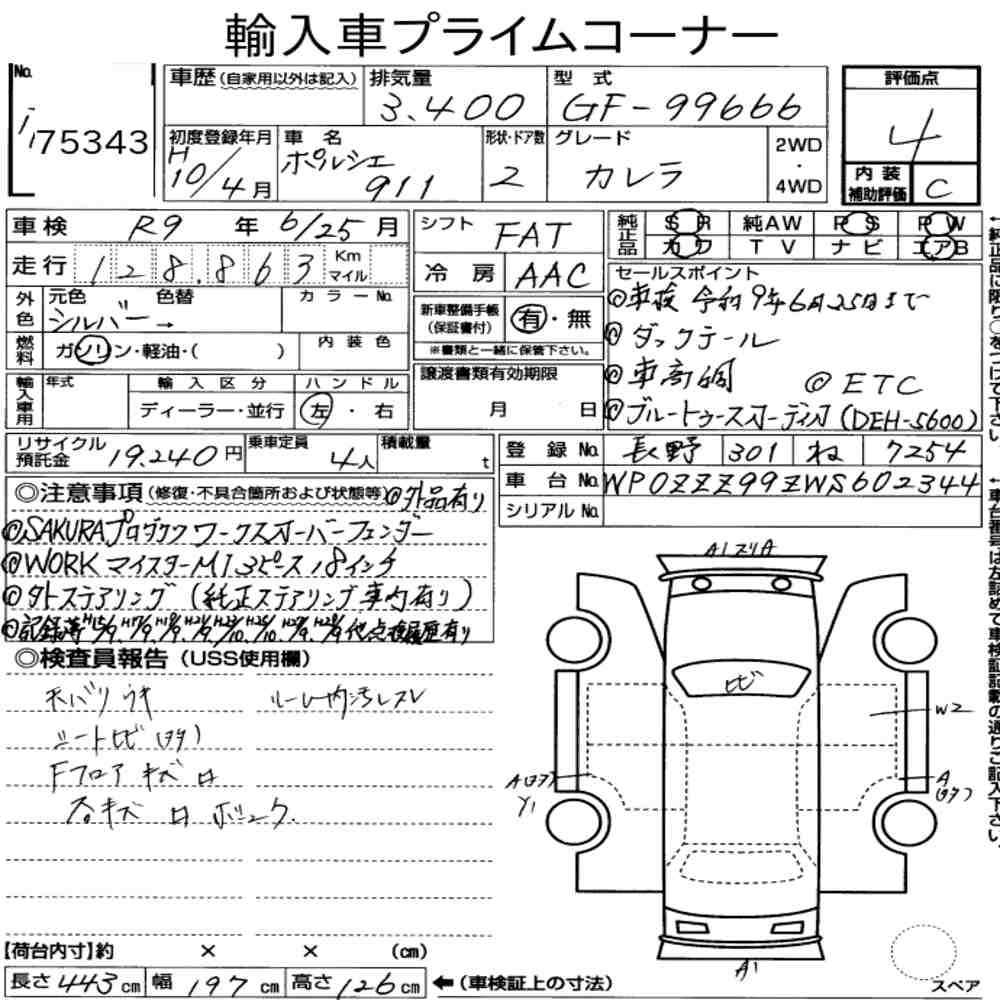 輸入車プライムコーナー
No.
i 75343
車歴(自家用以外は記入)
排気量
3.400
型式
GF-99666
評価点
4
初度登録年月
H10/4月
車名
ポルシェ
911
形状・ドア数
2
グレード
カレラ
2WD
・
4WD
内装
補助評価
C
車検 R9年6/25月
シフト FAT
純正品
SR 純AW PS PW
カワ TV ナビ エアB
走行 128.863 Km マイル
冷房 AAC
外色
元色 色替 カラーNo.
シルバー→
新車整備手帳
(保証書付)
有・無
※書類と一緒に保管下さい。
セールスポイント
◎車検 令和9年6月25日まで
◎ダックテール
◎車高調 ◎ETC
◎ブルートゥースオーディオ(DEH-5600)
燃料
ガソリン・軽油・( )
内装色
輸入車用
年式 輸入区分 ハンドル
ディーラー・並行 左・右
譲渡書類有効期限
月 日
リサイクル
預託金
19.240円
乗車定員
4人
積載量
t
登録No. 長野 301 ね 7254
車台No. WP0ZZZ99ZWS602344
シリアルNo.
◎注意事項(修復・不具合箇所および状態等)◎外品有り
◎SAKURAプロダクツ ワークスオーバーフェンダー
◎WORK マイスターM1 3ピース 18インチ
◎外ステアリング(純正ステアリング車内有り)
◎記録簿
◎検査員報告(USS使用欄)
天バリ ウキ
シート
Fフロア キズ
キズ
A1
W2
A
Y1
A
A1
スペア
【荷台内寸】約 × × (cm)
長さ 443cm 幅 197cm 高さ 126cm ←(車検証上の寸法)
←純正品に限り○をつけて下さい。
←車台番号は左詰めで車検証記載の通りご記入下さい。